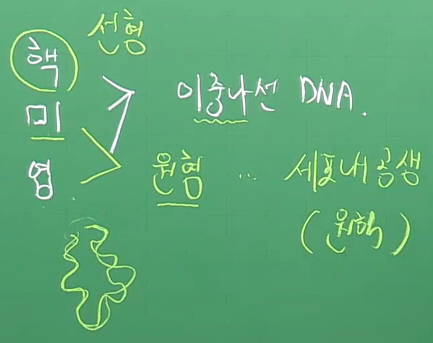 핵 선형
미 이중나선 DNA.
엽 원형 … 세포내 공생
(원핵)